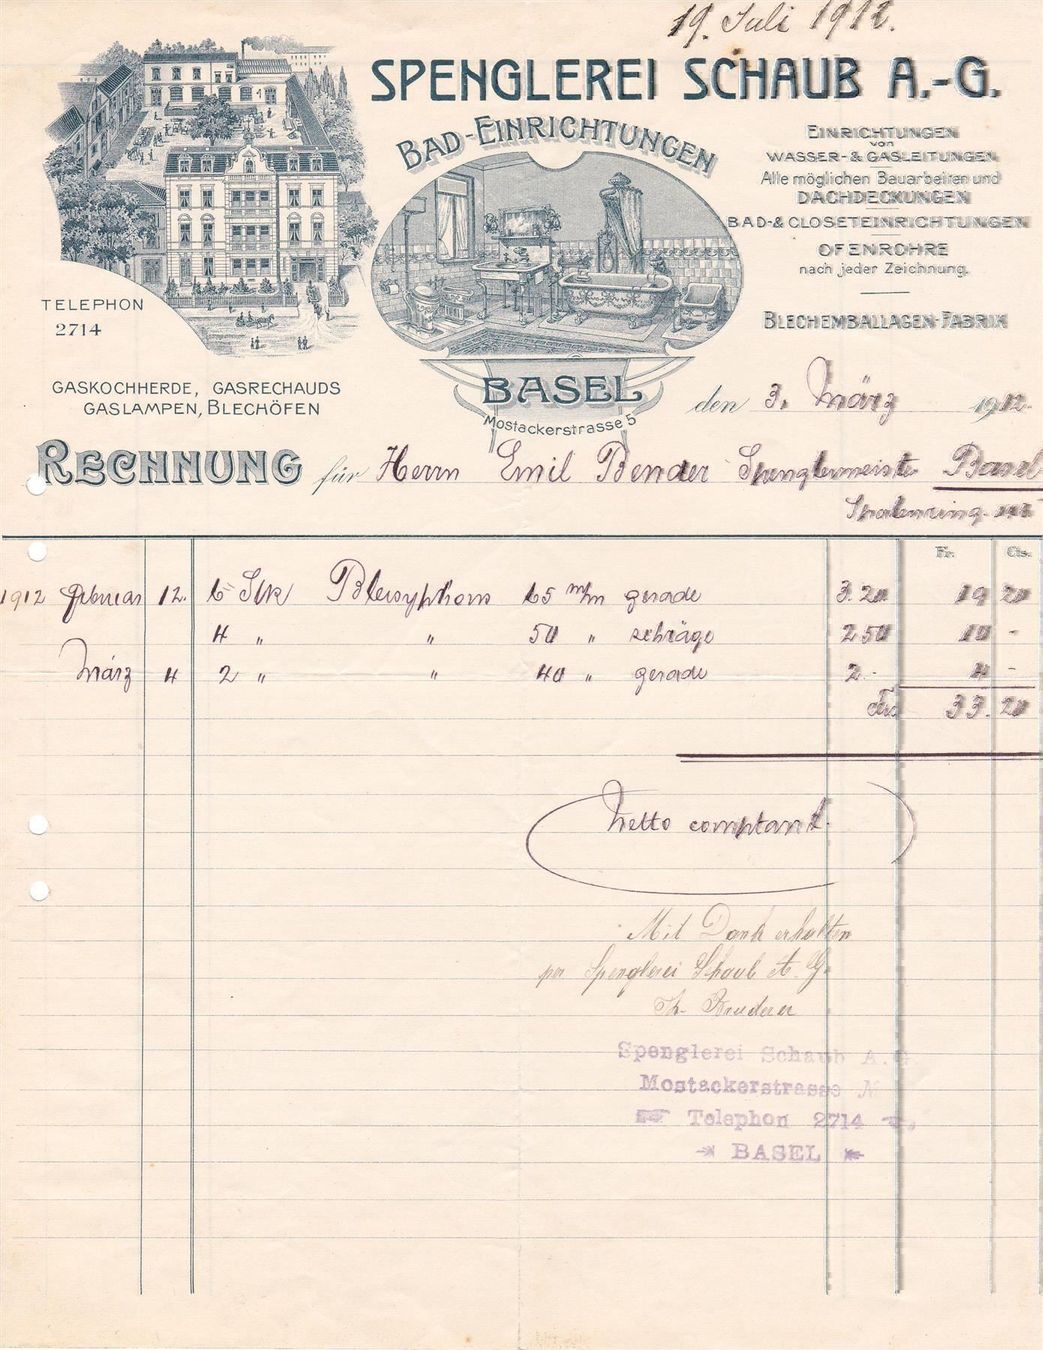 19. Juli 1912.
SPENGLEREI SCHAUB A.-G.
BAD-EINRICHTUNGEN
EINRICHTUNGEN
von
WASSER- & GASLEITUNGEN
Alle möglichen Bauarbeiten und
DACHDECKUNGEN
BAD- & CLOSETEINRICHTUNGEN
OFENROHRE
nach jeder Zeichnung.
BLECHEMBALLAGEN-FABRIK
TELEPHON
2714
GASKOCHHERDE, GASRECHAUDS
GASLAMPEN, BLECHÖFEN
BASEL
Mostackerstrasse 5
den 3. März 1912.
RECHNUNG für Herrn Emil Bender Spenglermeister Basel
Spalenring
Fr. Cts.
1912 Februar 12. 6 Stk Bleisyphons 65 m/m gerade 3.20 19 20
4 " " 50 " schräge 2 50 10 -
März 4 2 " " 40 " gerade 2.- 4 -
Frs 33.20
Netto comptant.
Mit Dank erhalten
per Spenglerei Schaub A. G.
Th. Bruderer
Spenglerei Schaub A.G
Mostackerstrasse
Telephon 2714
BASEL